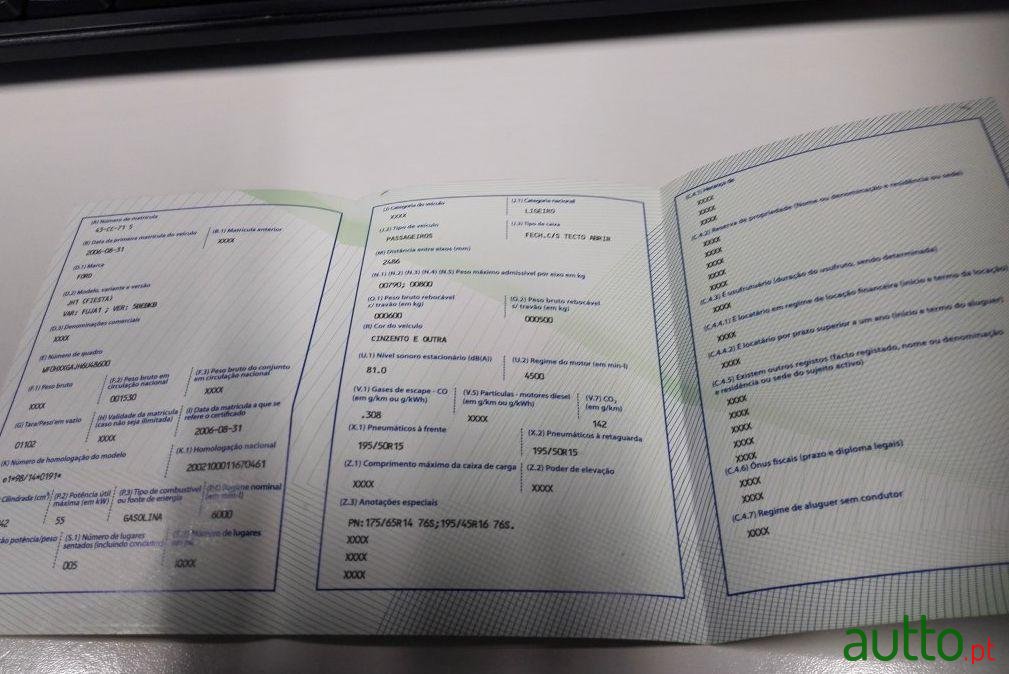 (A) Número de matrícula
63-CC-71 S
(B) Data da primeira matrícula do veículo
2006-08-31
(B.1) Matrícula anterior
XXXX
(D.1) Marca
FORD
(D.2) Modelo, variante e versão
JH1 (FIESTA)
VAR: FUJA1 ; VER: 5BEBKB
(D.3) Denominações comerciais
XXXX
(E) Número de quadro
WF0HXXGAJH6U48600
(F.1) Peso bruto
XXXX
(F.2) Peso bruto em
circulação nacional
001530
(F.3) Peso bruto do conjunto
em circulação nacional
XXXX
(G) Tara/Peso em vazio
01102
(H) Validade da matrícula
(caso não seja ilimitada)
XXXX
(I) Data da matrícula a que se
refere o certificado
2006-08-31
(K) Número de homologação do modelo
e1*98/14*0191*
(K.1) Homologação nacional
2002100011670461
Cilindrada (cm³)
42
(P.2) Potência útil
máxima (em kW)
55
(P.3) Tipo de combustível
ou fonte de energia
GASOLINA
(P.4) Regime nominal
(em min-I)
6000
ão potência/peso
(S.1) Número de lugares
sentados (incluindo condutor)
005
(S.2) Número de lugares
XXXX
(J) Categoria do veículo
XXXX
(J.1) Categoria nacional
LIGEIRO
(J.2) Tipo de veículo
PASSAGEIROS
(J.3) Tipo de caixa
FECH.C/S TECTO ABRIR
(M) Distância entre eixos (mm)
2486
(N.1) (N.2) (N.3) (N.4) (N.5) Peso máximo admissível por eixo em kg
00790; 00800
(O.1) Peso bruto rebocável
c/ travão (em kg)
000600
(O.2) Peso bruto rebocável
s/ travão (em kg)
000500
(R) Cor do veículo
CINZENTO E OUTRA
(U.1) Nível sonoro estacionário (dB(A))
81.0
(U.2) Regime do motor (em min-I)
4500
(V.1) Gases de escape - CO
(em g/km ou g/kWh)
.308
(V.5) Partículas - motores diesel
(em g/km ou g/kWh)
XXXX
(V.7) CO₂
(em g/km)
142
(X.1) Pneumáticos à frente
195/50R15
(X.2) Pneumáticos à retaguarda
195/50R15
(Z.1) Comprimento máximo da caixa de carga
XXXX
(Z.2) Poder de elevação
XXXX
(Z.3) Anotações especiais
PN:175/65R14 76S;195/45R16 76S.
XXXX
XXXX
XXXX
(C.4.1) Herança de
XXXX
XXXX
XXXX
(C.4.2) Reserva de propriedade (Nome ou denominação e residência ou sede)
XXXX
XXXX
XXXX
XXXX
XXXX
(C.4.3) É usufrutuário (duração do usufruto, sendo determinada)
XXXX
(C.4.4.1) É locatário em regime de locação financeira (início e termo da locação)
XXXX
(C.4.4.2) É locatário por prazo superior a um ano (início e termo do aluguer)
XXXX
(C.4.5) Existem outros registos (facto registado, nome ou denominação
e residência ou sede do sujeito activo)
XXXX
XXXX
XXXX
XXXX
XXXX
(C.4.6) Ónus fiscais (prazo e diploma legais)
XXXX
XXXX
(C.4.7) Regime de aluguer sem condutor
XXXX
autto.pt